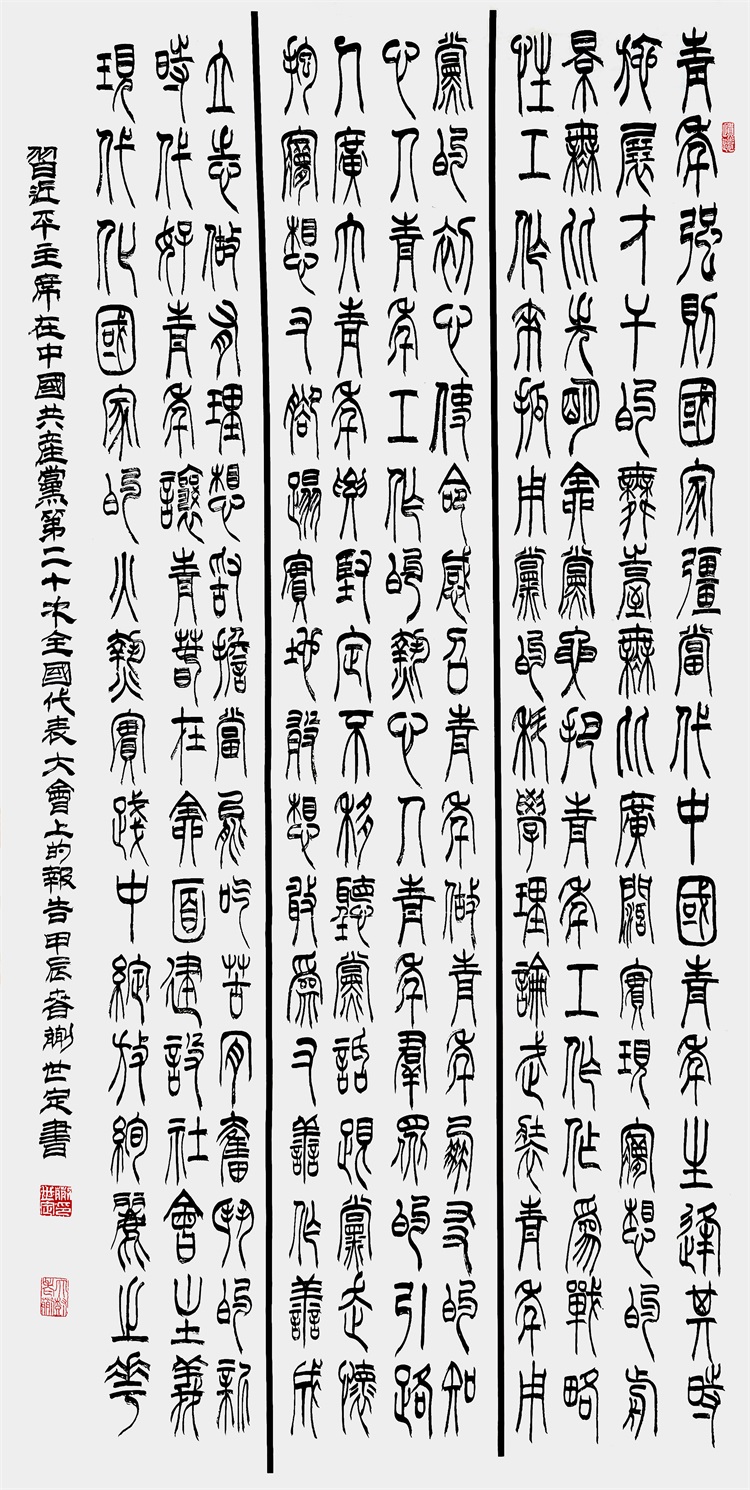 青年強則國家彊當代中國青年生逢其時
施展才干的舞臺無比廣闊實現夢想的前
景無比光明全黨要把青年工作作為戰略
性工作來抓用黨的科學理論武裝青年用
黨的初心使命感召青年做青年朋友的知
心人青年工作的熱心人青年羣眾的引路
人廣大青年要堅定不移聽黨話跟黨走懷
抱夢想又腳蹋實地敢想敢為又善作善成
立志做有理想敢擔當能吃苦肯奮鬥的新
時代好青年讓青春在全面建設社會主義
現代化國家的火熱實踐中綻放絢麗之花
習近平主席在中國共產黨第二十次全國代表大會上的報告甲辰春謝世定書